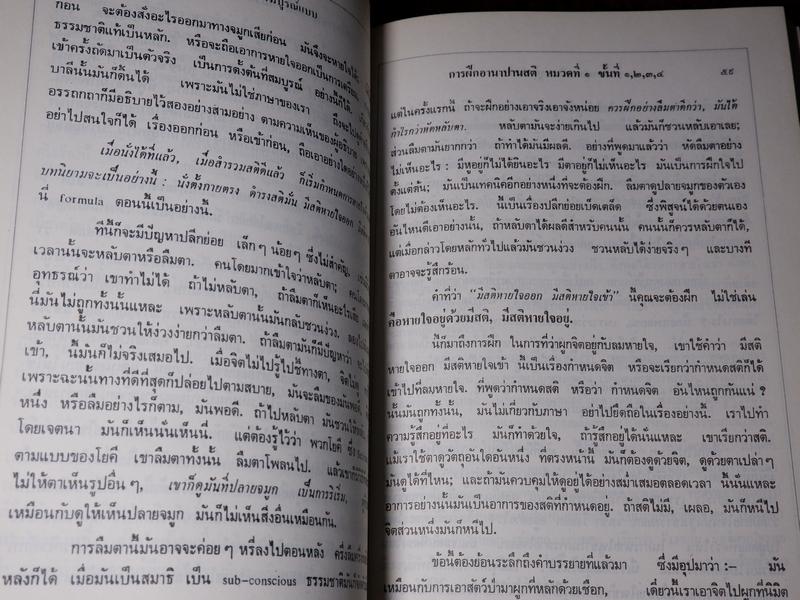 มบูรณ์แบบ
ก่อน จะต้องสั่งอะไรออกมาทางจมูกเสียก่อน มันจึงจะหายใจได้
ธรรมชาติแท้เป็นหลัก. หรือจะถือเอาการหายใจออกเป็นการเตรียม
เข้าครั้งถัดมาเป็นตัวจริง เป็นการตั้งต้นที่สมบูรณ์ อย่างนี้ก็ได้.
บาลีนั้นมันก็ดิ้นได้ เพราะมันไม่ใช่ภาษาของเรา
อรรถกถาก็มีอธิบายไว้สองอย่างสามอย่าง ตามความเห็นของผู้อธิบาย
อย่าไปสนใจก็ได้ เรื่องออกก่อน หรือเข้าก่อน, ถือเอาอย่างใดอย่างหนึ่ง
เมื่อนั่งได้ที่แล้ว, เมื่อสำรวมสติดีแล้ว ก็เริ่มกำหนดการหายใจ
บทนิยามจะเป็นอย่างนี้ : นั่งตั้งกายตรง ดำรงสติมั่น มีสติหายใจออก
นี่ formula ตอนนี้เป็นอย่างนี้.
ทีนี้ก็จะมีปัญหาปลีกย่อย เล็กๆ น้อยๆ ซึ่งไม่สำคัญ,
เวลานั้นจะหลับตาหรือลืมตา. คนโดยมากเข้าใจว่าหลับตา;
อุทธรณ์ว่า เขาทำไม่ได้ ถ้าไม่หลับตา, ถ้าลืมตาก็เห็นอะไรเสีย
นี่มันไม่ถูกทั้งนั้นแหละ เพราะหลับตานั้นมันกลับชวนง่วง.
หลับตานั้นมันชวนให้ง่วงง่ายกว่าลืมตา. ถ้าลืมตามันก็มีปัญหาว่า
เข้า, นี้มันก็ไม่จริงเสมอไป. เมื่อจิตไม่ไปรู้ไปชี้ทางตา,
เพราะฉะนั้นทางที่ดีที่สุดก็ปล่อยไปตามสบาย, มันจะลืมของมันพอดี
หนึ่ง หรือลืมอย่างไรก็ตาม, มันพอดี. ถ้าไปหลับตา มันชวน
โดยเจตนา มันก็เห็นนั่นเห็นนี่. แต่ต้องรู้ไว้ว่า พวกโยคี
ตามแบบของโยคี เขาลืมตาทั้งนั้น ลืมตาโพลนไป. แล้ว
ไม่ให้ตาเห็นรูปอื่นๆ, เขาก็ดูมันที่ปลายจมูก เป็นการเริ่ม,
เหมือนกับดูให้เห็นปลายจมูก มันก็ไม่เห็นสิ่งอื่นเหมือนกัน.
การลืมตานี้มันอาจจะค่อยๆ หรี่ลงไปตอนหลัง
หลังก็ได้ เมื่อมันเป็นสมาธิ เป็น sub-conscious ธรรมชาติมัน
การฝึกอานาปานสติ หมวดที่ ๑ ขั้นที่ ๑,๒,๓,๔ ๕๙
แต่ในครั้งแรกนี้ ถ้าจะฝึกอย่างเอาจริงเอาจังหน่อย ควรฝึกอย่างลืมตาดีกว่า, มันได้
กำไรกว่าหัดหลับตา. หลับตามันจะง่ายเกินไป แล้วมันก็ชวนหลับเอาเลย;
ส่วนลืมตามันยากกว่า ถ้าทำได้มันมีผลดี. อย่างที่พูดมาแล้วว่า หัดลืมตาอย่าง
ไม่เห็นอะไร : มีหูอยู่ก็ไม่ได้ยินอะไร มีตาอยู่ก็ไม่เห็นอะไร มันเป็นการฝึกใจไป
ตั้งแต่ต้น; มันเป็นเทคนิคอีกอย่างหนึ่งที่จะต้องฝึก. ลืมตาดูปลายจมูกของตัวเอง
โดยไม่ต้องเห็นอะไร. นี้เป็นเรื่องปลีกย่อยเบ็ดเตล็ด ซึ่งพิสูจน์ได้ด้วยตนเอง
อันไหนดีเอาอย่างนั้น, ถ้าหลับตาได้ผลดีสำหรับคนนั้น คนนั้นก็ควรหลับตาก็ได้,
แต่เมื่อกล่าวโดยหลักทั่วไปแล้วมันชวนง่วง ชวนหลับได้ง่ายจริงๆ และบางที
ตาอาจจะรู้สึกร้อน.
คำที่ว่า “มีสติหายใจออก มีสติหายใจเข้า” นี้คุณจะต้องฝึก ไม่ใช่เล่น
คือหายใจอยู่ด้วยมีสติ, มีสติหายใจอยู่.
นี้ก็มาถึงการฝึก ในการที่ว่าผูกจิตอยู่กับลมหายใจ, เขาใช้คำว่า มีสติ
หายใจออก มีสติหายใจเข้า นี้เป็นเรื่องกำหนดจิต หรือจะเรียกว่ากำหนดสติก็ได้
เข้าไปที่ลมหายใจ. ที่พูดว่ากำหนดสติ หรือว่า กำหนดจิต อันไหนถูกกันแน่ ?
นั้นมันถูกทั้งนั้น, มันไม่เกี่ยวกับภาษา อย่าไปยึดถือในเรื่องอย่างนี้. เราไปทำ
ความรู้สึกอยู่ที่อะไร มันก็ทำด้วยใจ, ถ้ารู้สึกอยู่ได้นั่นแหละ เขาเรียกว่าสติ.
แม้เราใช้ตาดูวัตถุอันใดอันหนึ่ง ที่ตรงหน้านี้ มันก็ต้องดูด้วยจิต, ดูด้วยตาเปล่าๆ
มันดูได้ที่ไหน; และถ้ามันควบคุมให้ดูอยู่ได้อย่างสม่ำเสมอตลอดเวลา นี้นั่นแหละ
อาการอย่างนั้นมันเป็นอาการของสติที่กำหนดอยู่. ถ้าสติไม่มี, เผลอ, มันก็หนีไป
จิตส่วนหนึ่งมันก็หนีไป.
ข้อนี้ต้องย้อนระลึกถึงคำบรรยายที่แล้วมา ซึ่งมีอุปมาว่า :– มัน
เหมือนกับการเอาสัตว์ป่ามาผูกที่หลักด้วยเชือก, เดี๋ยวนี้เราเอาจิตไปผูกที่นิมิต